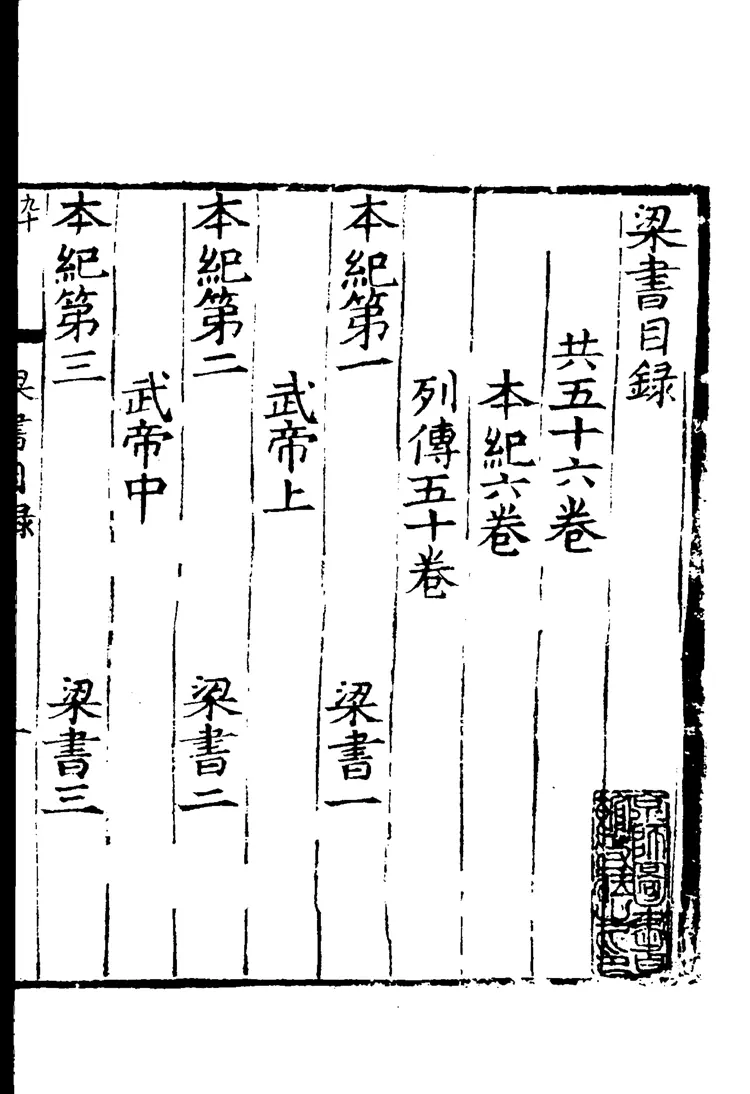 梁書目録
共五十六卷
本紀六卷
列傳五十卷
本紀第一　梁書一
武帝上
本紀第二　梁書二
武帝中
本紀第三　梁書三
九十
梁書目録
一
京師圖書